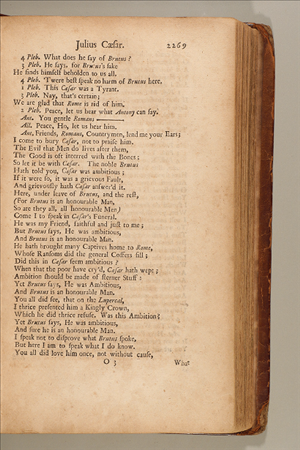 Julius Cæsar. 2269
4 Pleb. What does he say of Brutus?
3 Pleb. He says, for Brutus's sake
He finds himself beholden to us all.
4 Pleb. 'Twere best speak no harm of Brutus here.
1 Pleb. This Cæsar was a Tyrant.
3 Pleb. Nay, that's certain;
We are glad that Rome is rid of him.
2 Pleb. Peace, let us hear what Antony can say.
Ant. You gentle Romans
All. Peace, Ho, let us hear him.
Ant. Friends, Romans, Countrymen, lend me your Ears;
I come to bury Cæsar, not to praise him.
The Evil that Men do lives after them,
The Good is oft interred with the Bones;
So let it be with Cæsar. The noble Brutus
Hath told you, Cæsar was ambitious;
If it were so, it was a grievous Fault,
And grievously hath Cæsar answer'd it.
Here, under leave of Brutus, and the rest,
(For Brutus is an honourable Man,
So are they all, all honourable Men)
Come I to speak in Cæsar's Funeral.
He was my Friend, faithful and just to me;
But Brutus says, He was ambitious,
And Brutus is an honourable Man.
He hath brought many Captives home to Rome,
Whose Ransoms did the general Coffers fill;
Did this in Cæsar seem ambitious?
When that the poor have cry'd, Cæsar hath wept;
Ambition should be made of sterner Stuff:
Yet Brutus says, He was Ambitious,
And Brutus is an honourable Man.
You all did see, that on the Lupercal,
I thrice presented him a Kingly Crown,
Which he did thrice refuse. Was this Ambition?
Yet Brutus says, He was ambitious,
And sure he is an honourable Man.
I speak not to disprove what Brutus spoke,
But here I am to speak what I do know.
You all did love him once, not without cause,
O 3 What